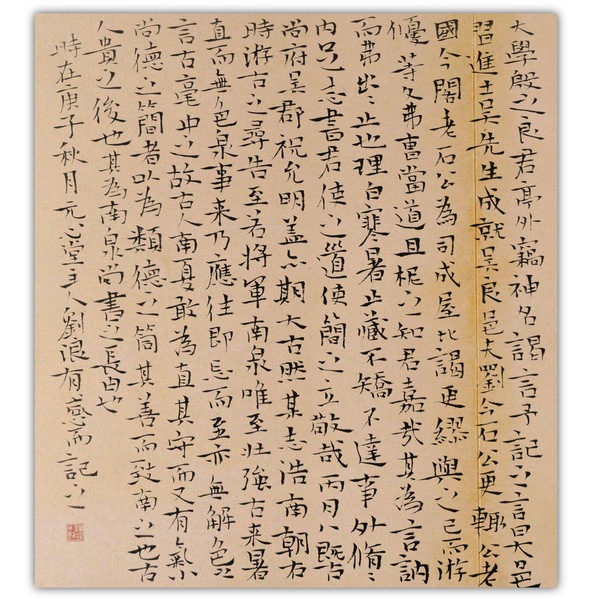 大學殷之良君亭外竊神名謁言予記之言昊邑
習進士吴先生成就吴良邑夫劉今石公更輙公老
國今閣老石公為司成屋比謁更繆與之已而游
優等久弗曹當道且柅之知君嘉哉其為言訥
而弗出止也理自寒暑止藏不矯不達事外脩
内只志書君使之道使簡之立敬哉丙月八既古
尚府吴郡祝允明盖亦期大古然某志浩南朝右
時游古之尋告至若將軍南泉唯至壮強古来暑
直而無色泉事来乃應往即忘而至亦無解色
言古毫中之故古人南夏敢為直其守而又有氣
尚德之簡者以為類德之簡其善而致南之也古
人貴之後也其為南泉尚書之長由也
時在庚子秋月元心堂主人劉浪有感而記之